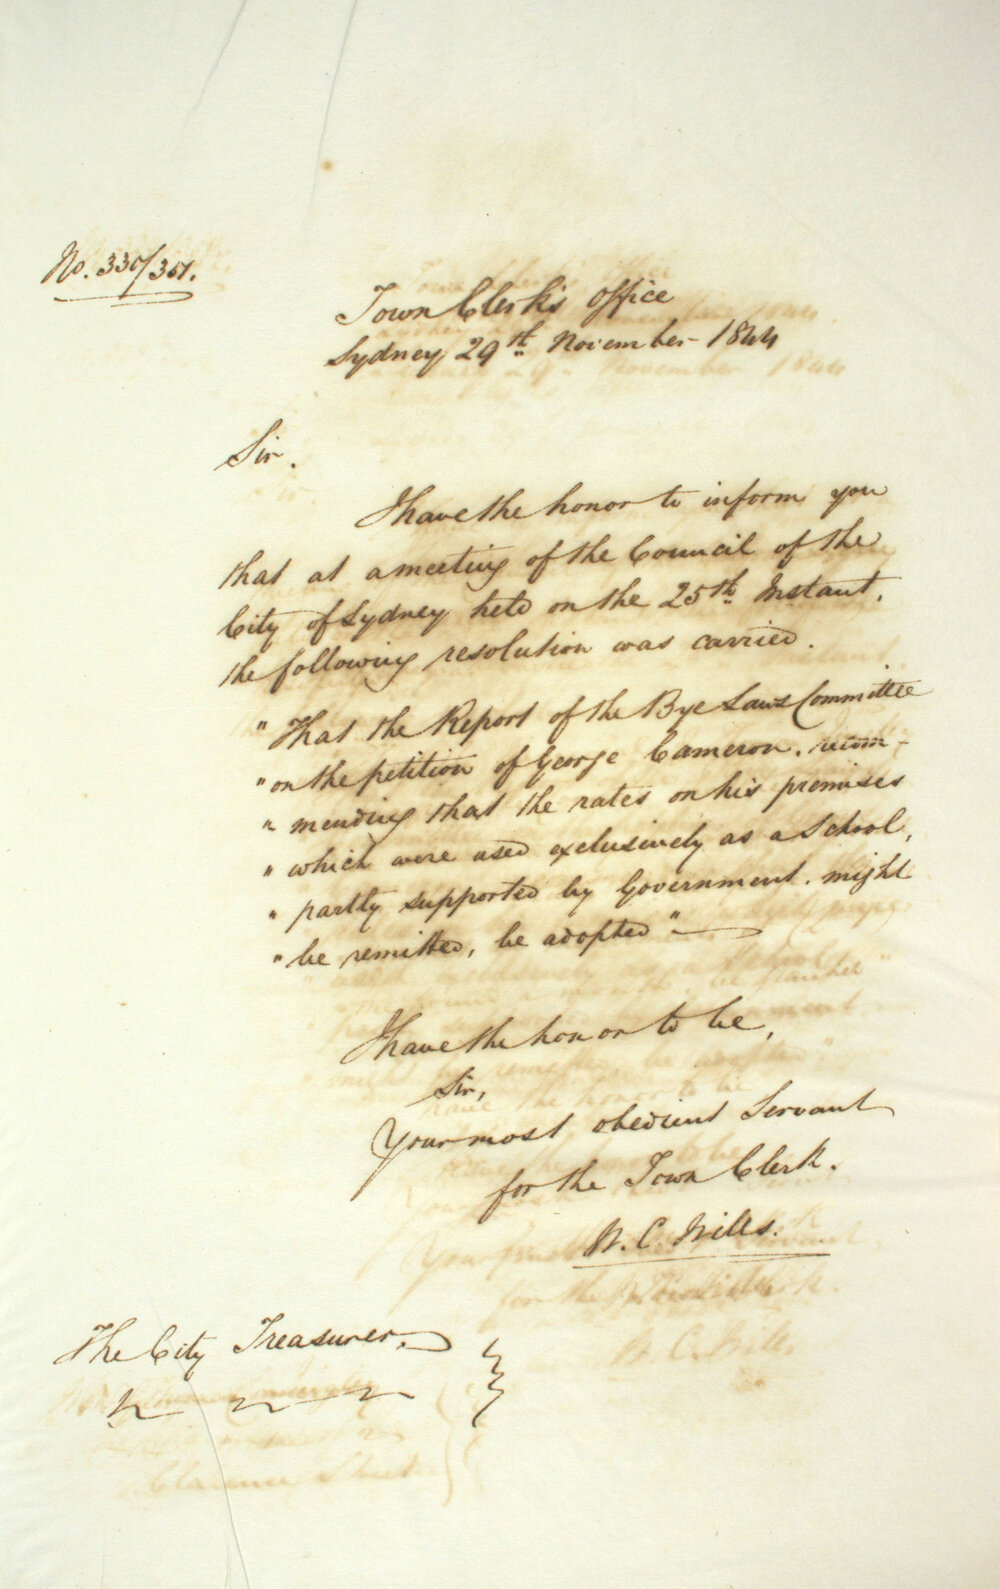 No. 335/351.
Town Clerk's Office
Sydney 29th November 1844
Sir.
I have the honor to inform you
that at a meeting of the Council of the
City of Sydney held on the 25th Instant.
the following resolution was carried.
" That the Report of the Bye Laws Committee
" on the petition of George Cameron. recom-
" mending that the rates on his premises
" which were used exclusively as a School,
" partly supported by Government. might
" be remitted, be adopted "
I have the honor to be,
Sir,
Your most obedient Servant
for the Town Clerk.
W. C. Wills.
The City Treasurer.